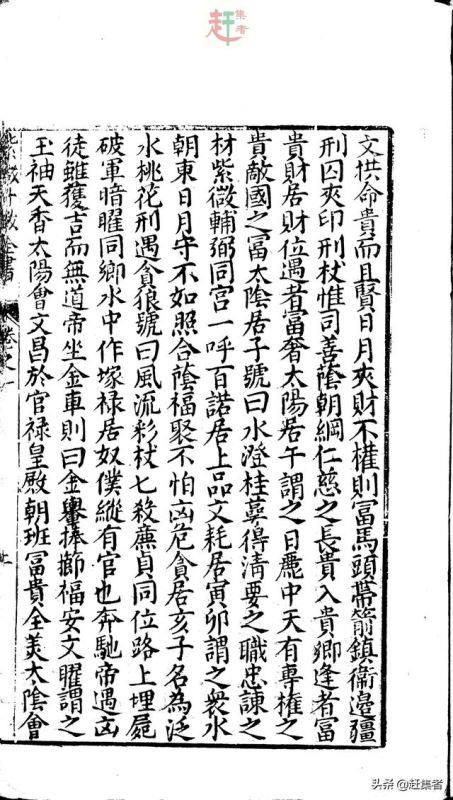 集者
赶
文拱命貴而且賢日月夾財不權則冨馬頭帶箭鎮衛邊疆
刑囚夾印刑杖惟司善蔭朝綱仁慈之長貴入貴鄉逢者冨
貴財居財位遇者富奢太陽居午謂之日麗中天有專權之
貴敵國之冨太陰居子號曰水澄桂蕚得清要之職忠諫之
材紫微輔弼同宫一呼百諾居上品文耗居寅卯謂之衆水
朝東日月守不如照合蔭福聚不怕凶危貪居亥子名為泛
水桃花刑遇貪狼號曰風流彩杖七殺廉貞同位路上埋屍
破軍暗曜同鄉水中作塚禄居奴僕縱有官也奔馳帝遇凶
徒雖獲吉而無道帝坐金車則曰金轝捧節福安文曜謂之
玉袖天香太陽會文昌於官禄皇殿朝班冨貴全美太陰會
紫微斗數全書 卷之一
头条 @赶集者